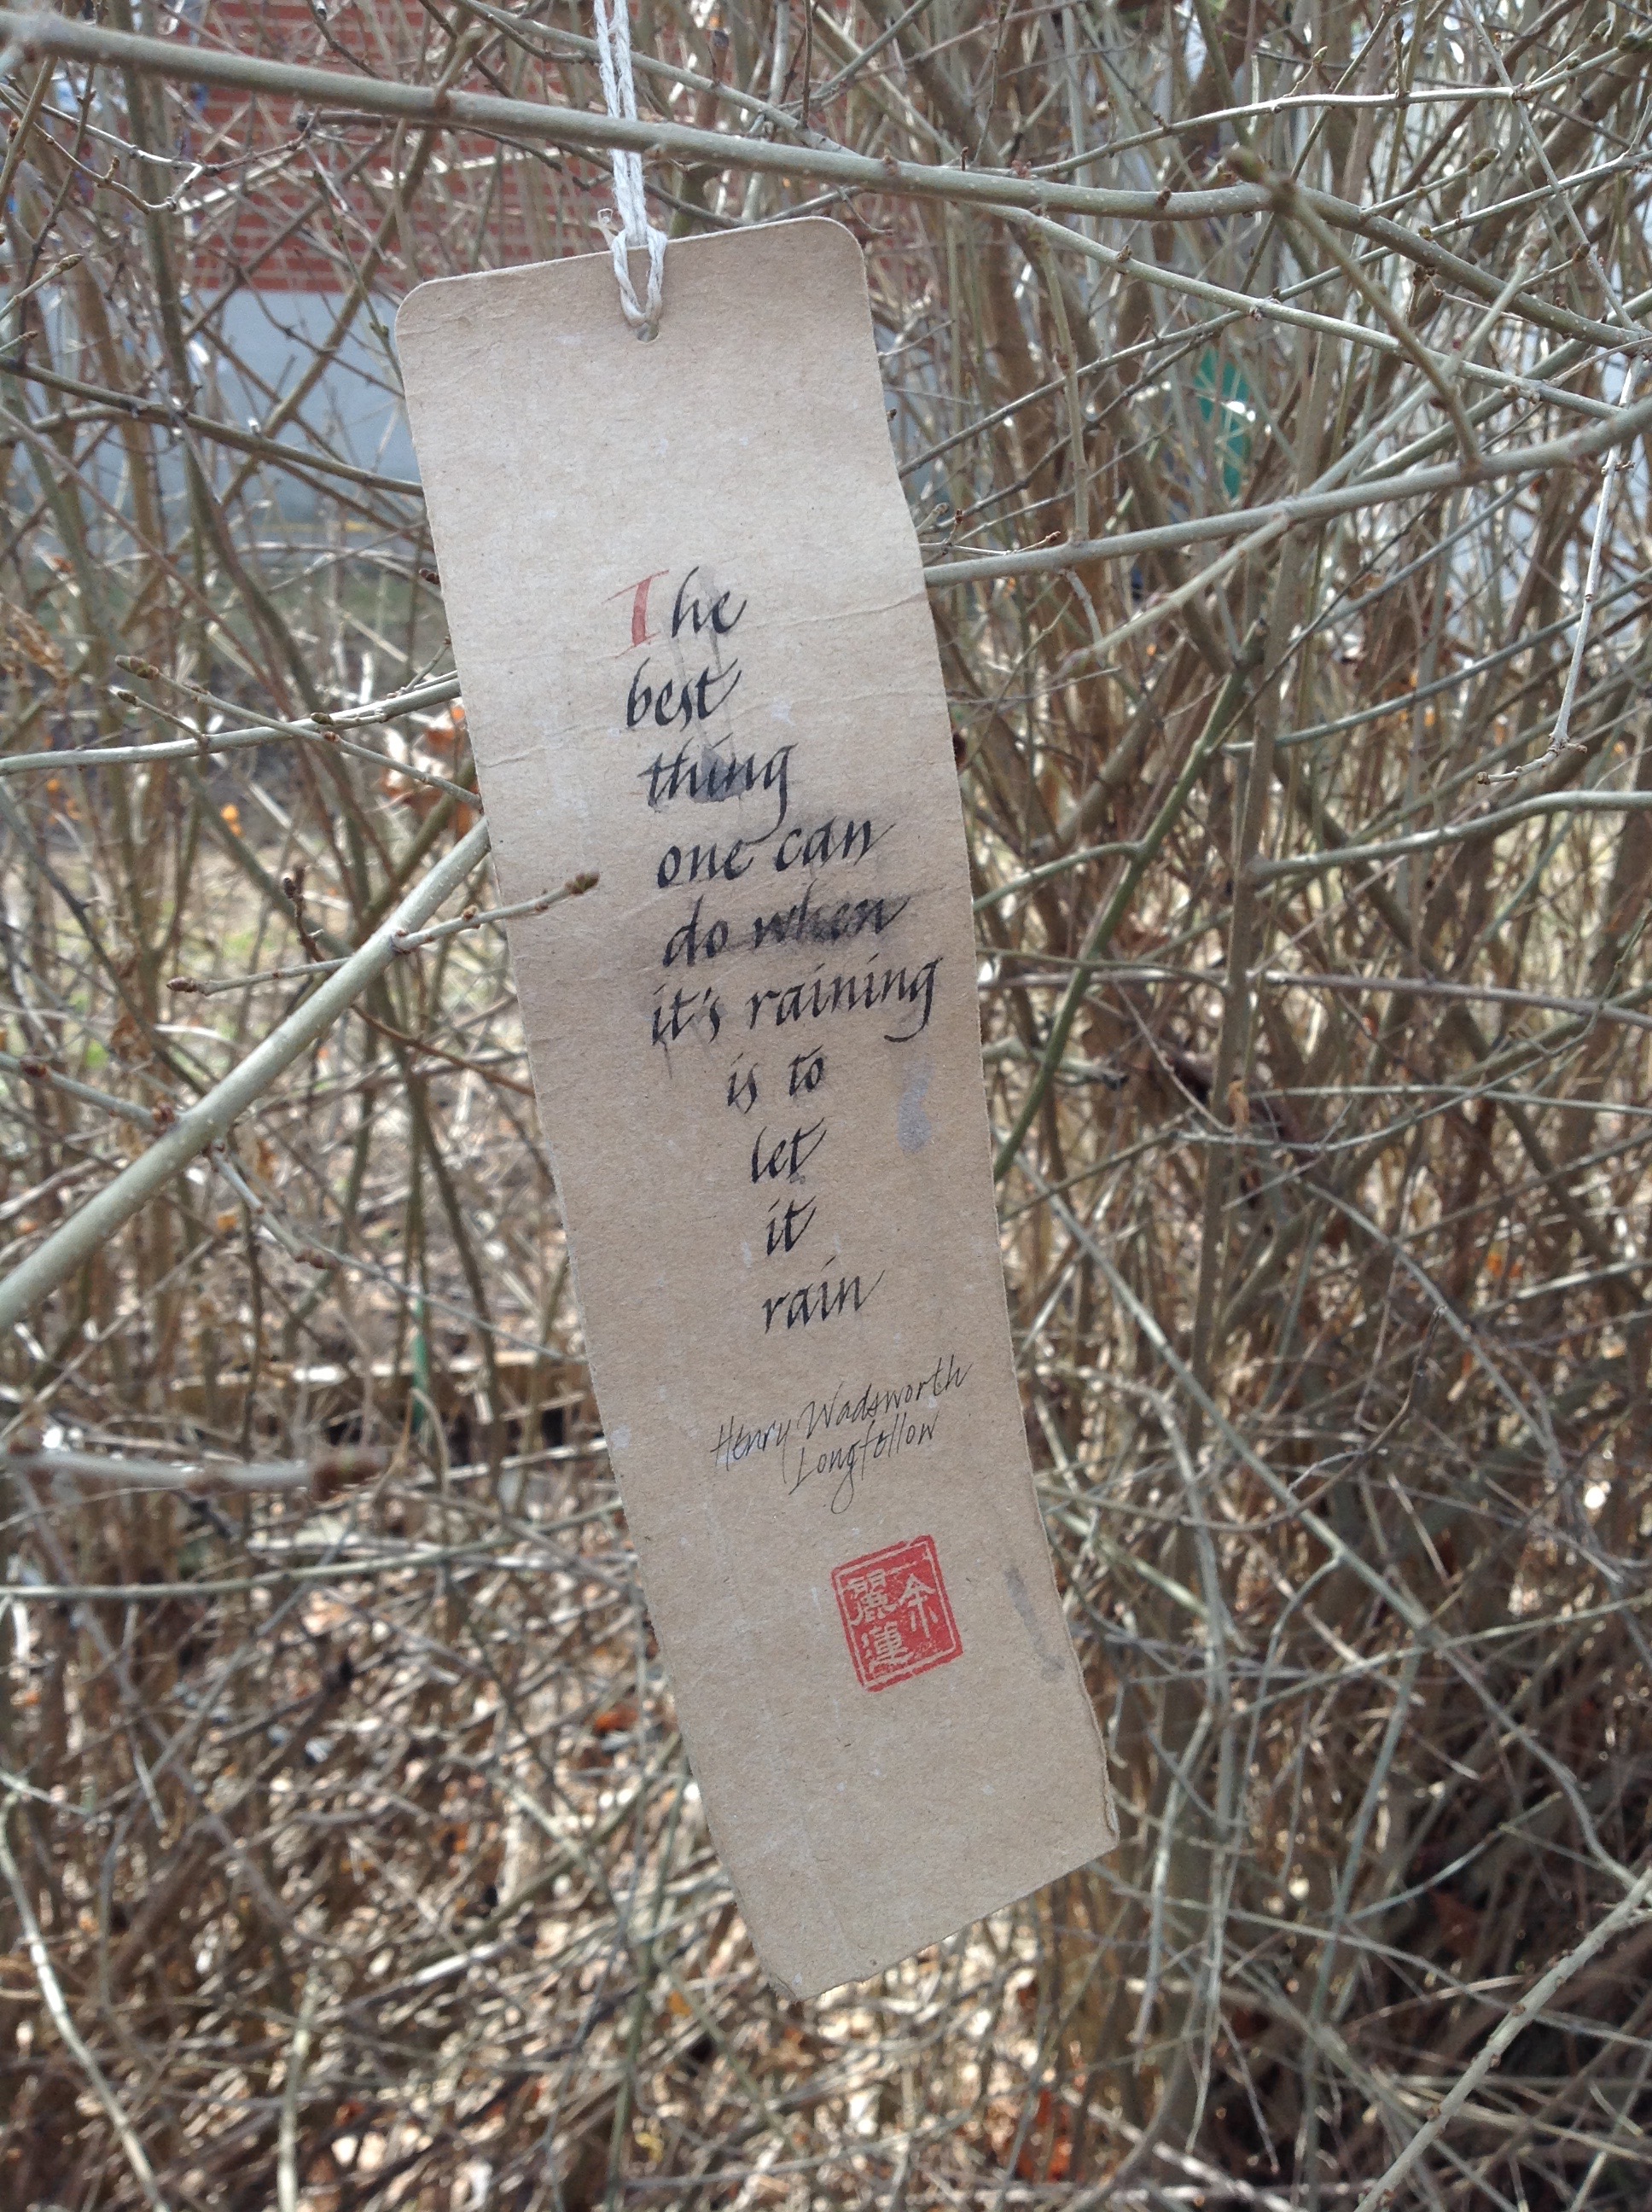 The
best
thing
one can
do when
it's raining
is to
let
it
rain
Henry Wadsworth
Longfellow
余
麗蓮